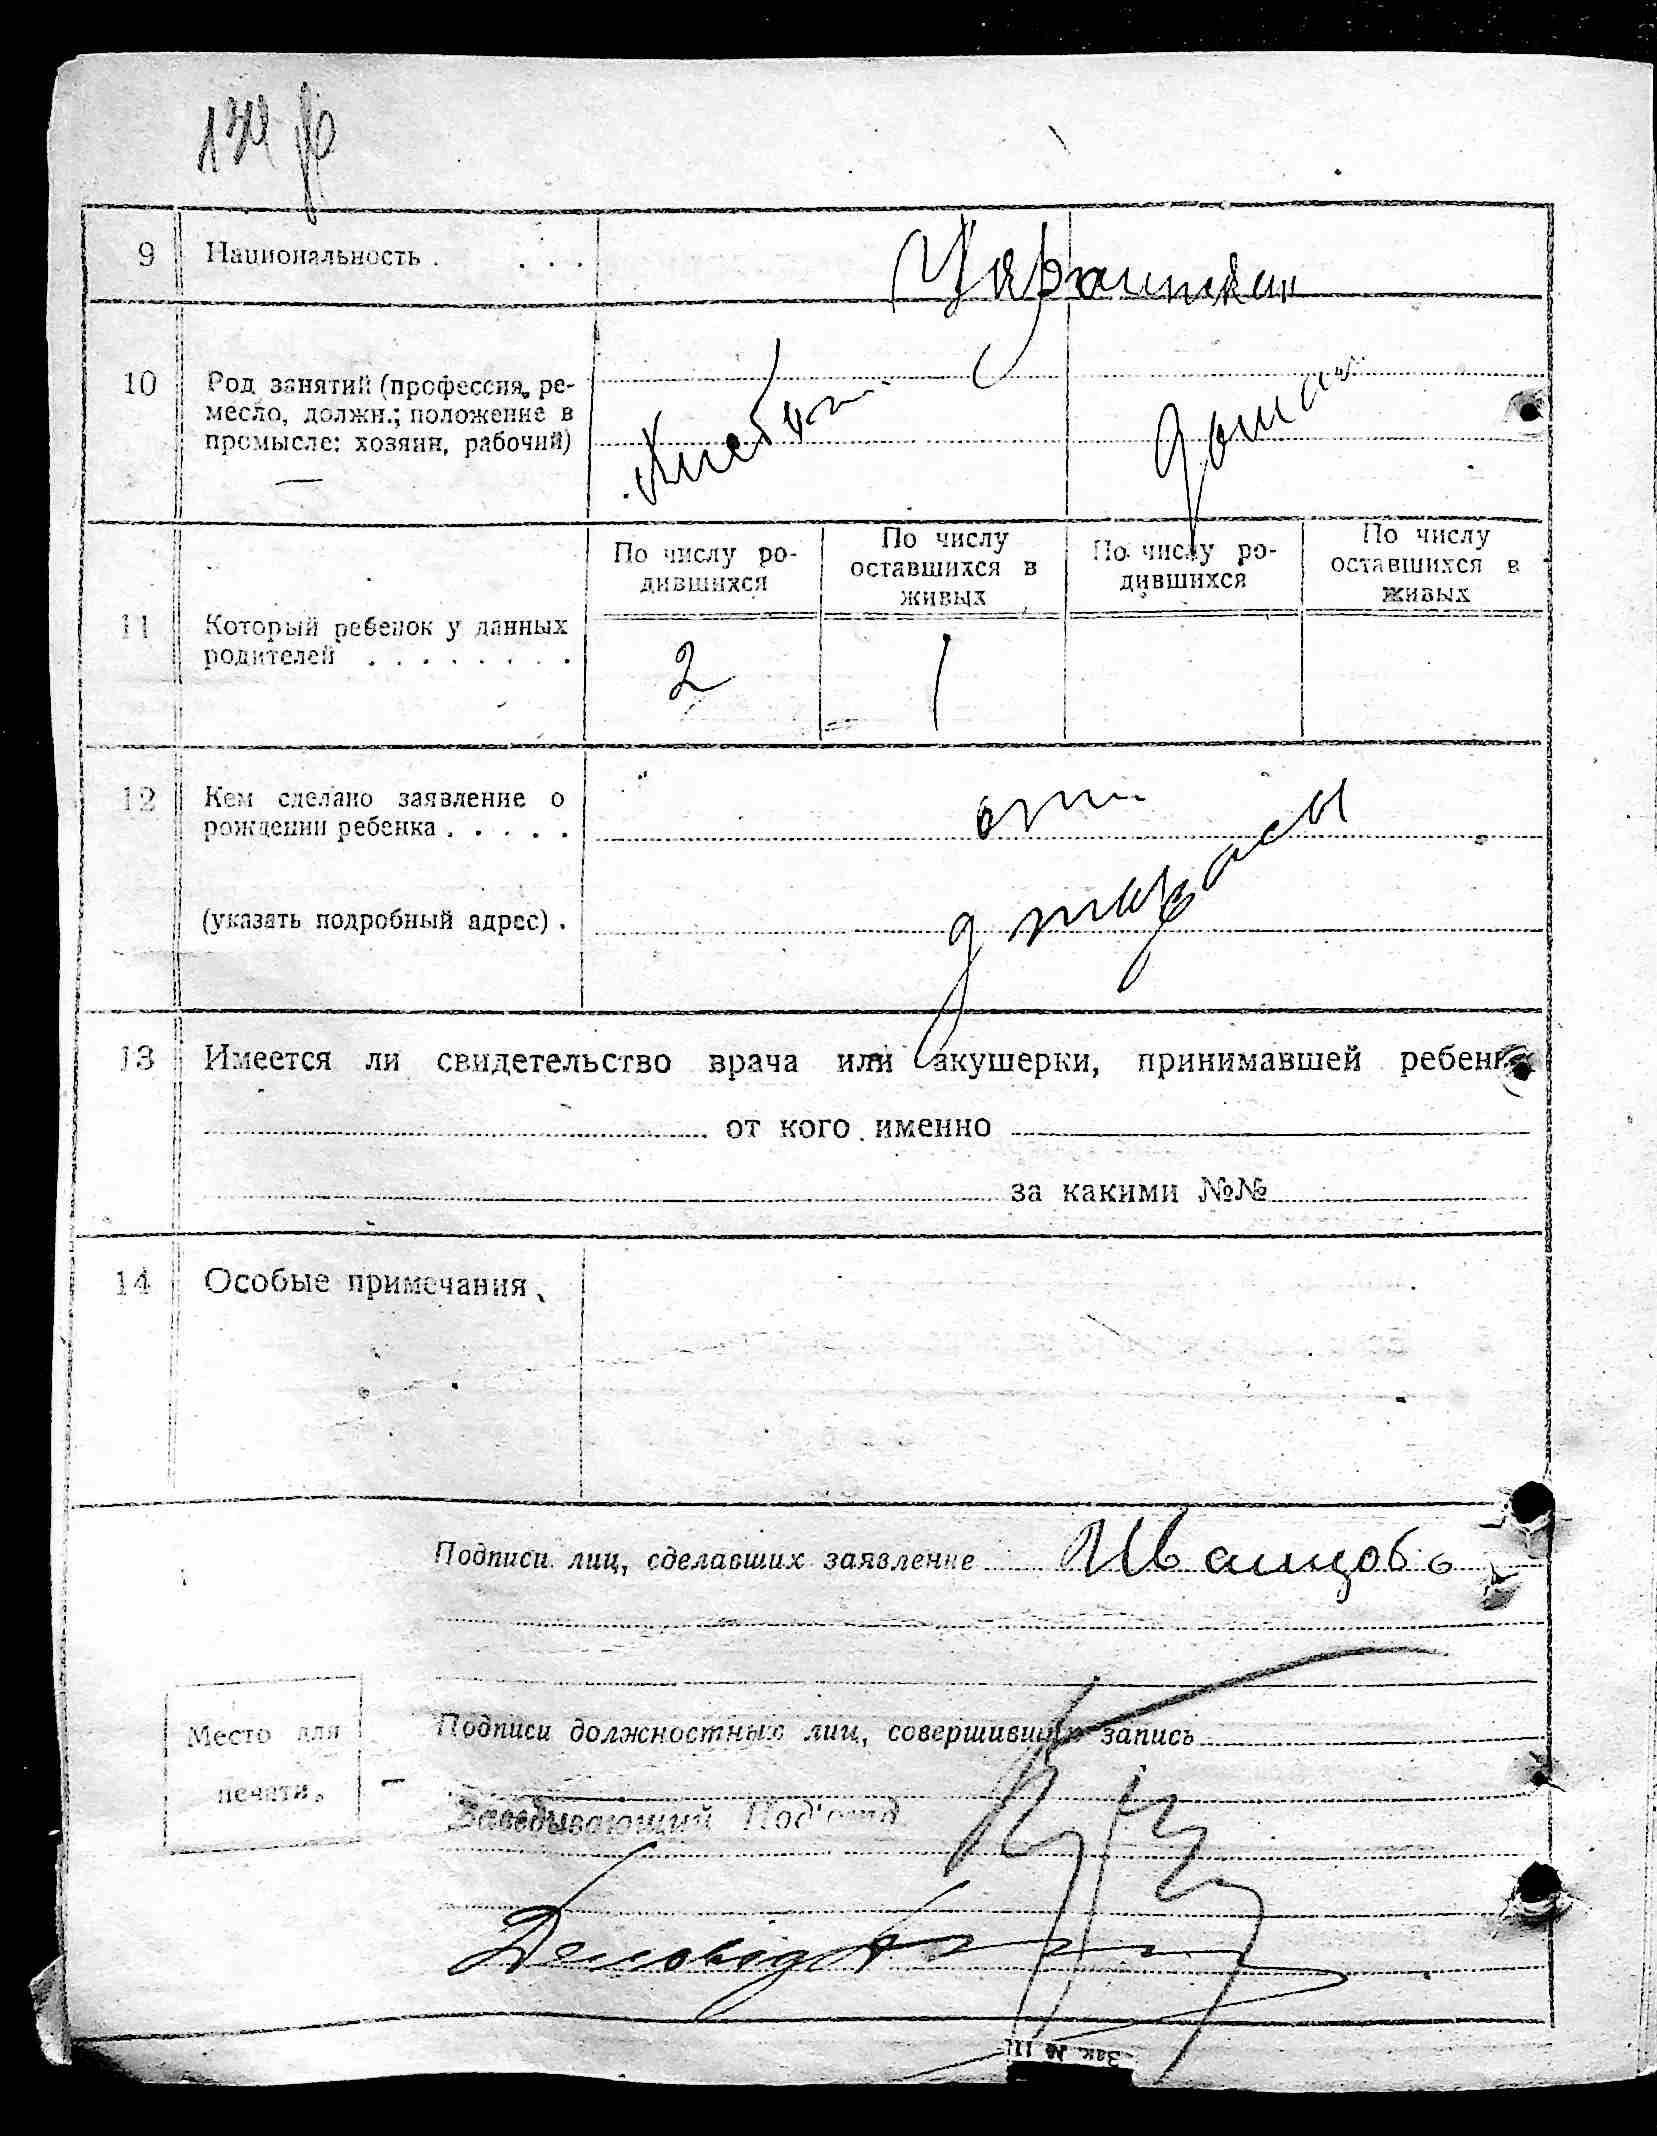 9 Национальность . . . .
10 Род занятий (профессия, ре-
месло, должн.; положение в
промысле: хозяин, рабочий)
По числу ро-
дившихся
По числу
оставшихся в
живых
По числу ро-
дившихся
По числу
оставшихся в
живых
11 Который ребенок у данных
родителей . . . . . . . .
2 1
12 Кем сделано заявление о
рождении ребенка . . . . .
(указать подробный адрес) .
13 Имеется ли свидетельство врача или акушерки, принимавшей
от кого именно
за какими №№
14 Особые примечания
Подписи лиц, сделавших заявление
Место для
печати.
Подписи должностных лиц, совершивших запись
Заведывающий Под'отд
Зак №